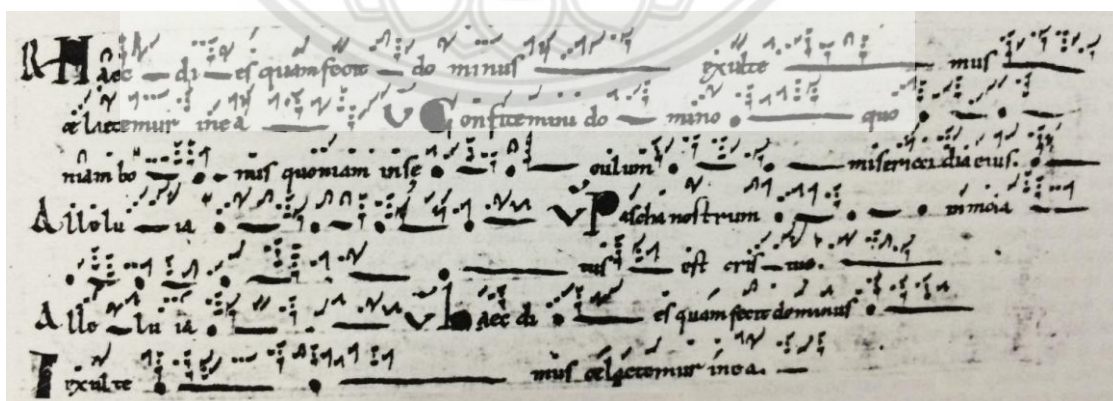 R Haec di es quam fecit do minus exulte mus
et laetemur in ea V Confitemini do mino quo
niam bo nus quoniam in se culum misericordia eius.
Allelu ia V Pascha nostrum inmola
tus est cris tus.
Alle lu ia V haec di es quam fecit dominus
exulte mus et laetemur in ea.